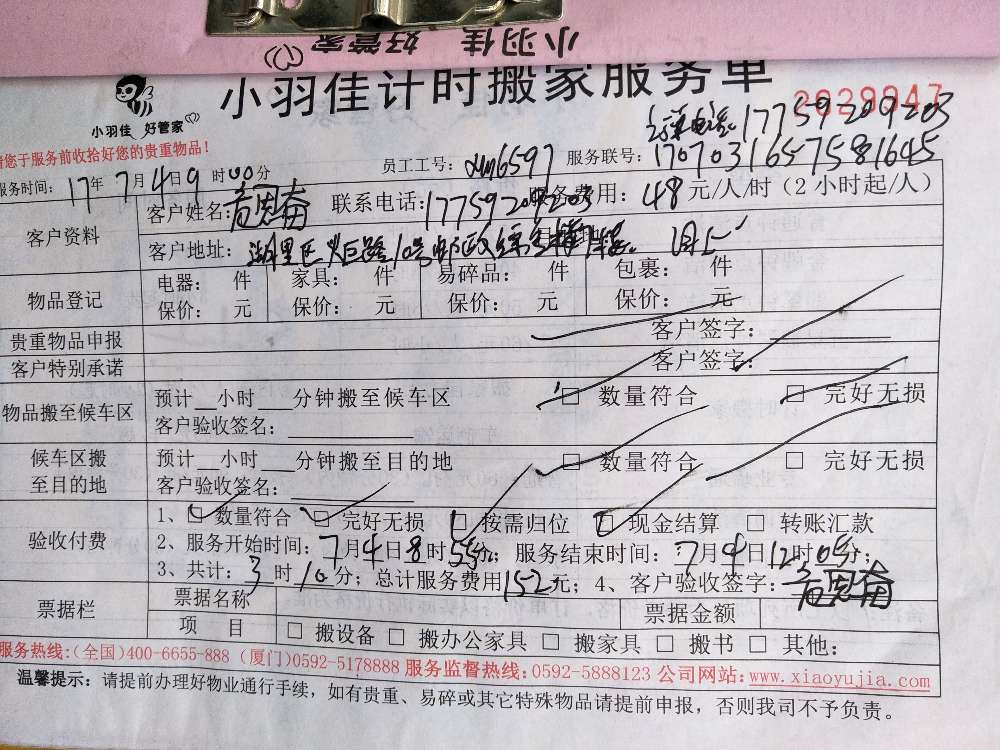 小羽佳 好管家
小羽佳计时搬家服务单
2029947
小羽佳 好管家
17759209203
请您于服务前收拾好您的贵重物品！
员工工号：xm6597 服务联号：1707031657581645
服务时间：17年7月4日9时00分
客户资料
客户姓名： 联系电话：17759209203 服务费用：48元/人/时（2小时起/人）
客户地址：湖里区火炬路10号邮政综合楼
物品登记
电器： 件 家具： 件 易碎品： 件 包裹： 件
保价： 元 保价： 元 保价： 元 保价： 元
贵重物品申报 客户签字：
客户特别承诺 客户签字：
物品搬至候车区
预计__小时___分钟搬至候车区 □ 数量符合 □ 完好无损
客户验收签名：
候车区搬至目的地
预计__小时___分钟搬至目的地 □ 数量符合 □ 完好无损
客户验收签名：
验收付费
1、□ 数量符合 □ 完好无损 □ 按需归位 □ 现金结算 □ 转账汇款
2、服务开始时间：7月4日8时55分；服务结束时间：7月4日12时05分；
3、共计：3时10分；总计服务费用152元；4、客户验收签字：
票据栏
票据名称 票据金额
项 目 □ 搬设备 □ 搬办公家具 □ 搬家具 □ 搬书 □ 其他：
服务热线：（全国）400-6655-888（厦门）0592-5178888 服务监督热线：0592-5888123 公司网站：www.xiaoyujia.com
温馨提示：请提前办理好物业通行手续，如有贵重、易碎或其它特殊物品请提前申报，否则我司不予负责。